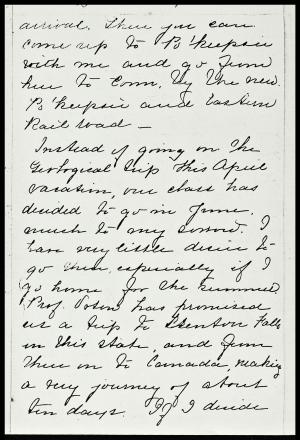 arrival. Then you can
come up to Po'keepsie
with me and go from
here to Conn. by the new
Po'keepsie and Eastern
Rail Road –
Instead of going on the
Geological trip this April
vacation, our class has
decided to go in June,
much to my sorrow. I
have very little desire to
go then, especially if I
go home for the summer.
Prof. Orton has promised
us a trip to Trenton Falls
in this state, and from
there on to Canada, making
a very journey of about
ten days. If I decide